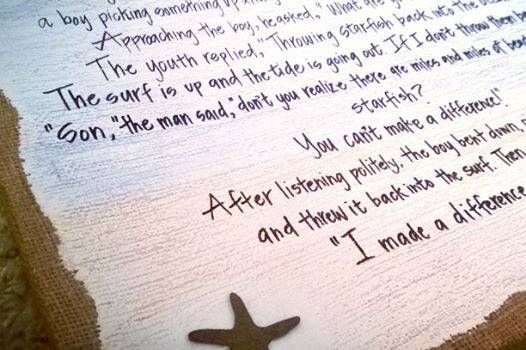 a boy picking something up and
Approaching the boy, he asked, "What are
The youth replied, "Throwing starfish back into the
The surf is up and the tide is going out. If I don't throw them
"Son," the man said, "don't you realize there are miles and miles of
starfish?
You can't make a difference!"
After listening politely, the boy bent down,
and threw it back into the surf. Then
"I made a difference